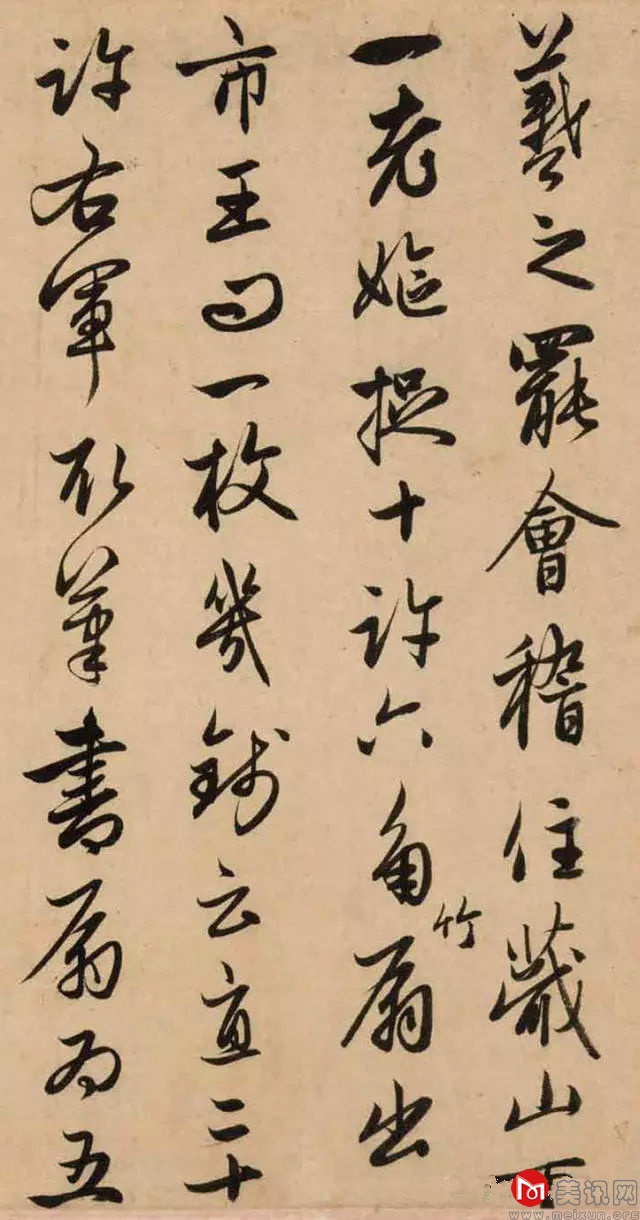 羲之罷會稽住蕺山下
一老嫗捉十許六角竹扇出
市王問一枚幾錢云直二十
許右軍取筆書扇為五
美讯网
www.meixun.org